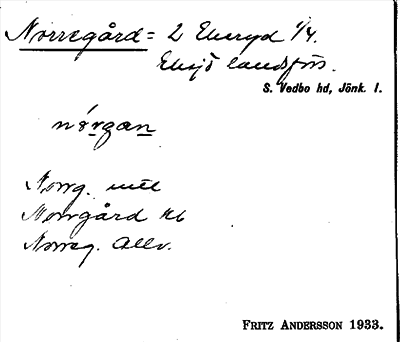 Norregård = 2 Eneryd 1/4.
Eksjö landsförs.
S. Vedbo hd, Jönk. l.
nórgan
Norrg. mtl
Norrgård kb
Norreg. Allv.
FRITZ ANDERSSON 1933.